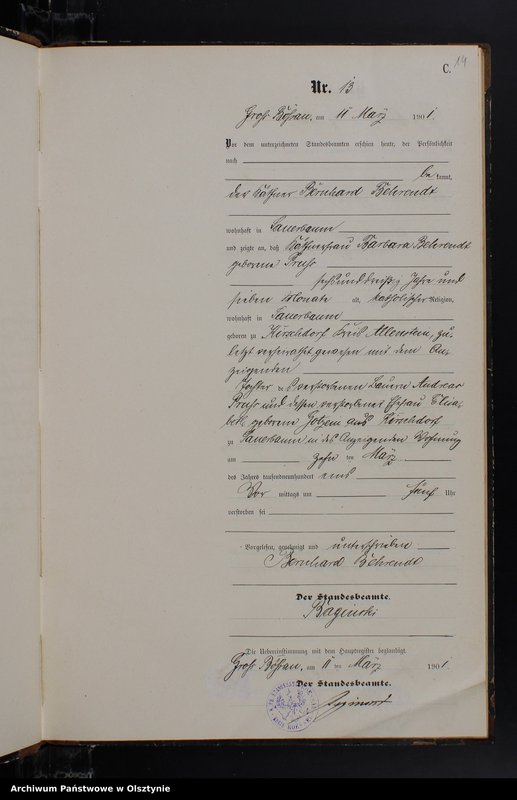 C. 14
Nr. 13
Groß Bößau, am 11 März 1901.
Vor dem unterzeichneten Standesbeamten erschien heute, der Persönlichkeit
nach
be kannt,
der Käthner Bernhard Behrendt
wohnhaft in Lauerbaum
und zeigte an, daß Käthnerfrau Barbara Behrendt
geborene Pruhs
sechsunddreißig Jahre und
sieben Monate alt, katholischer Religion,
wohnhaft in Lauerbaum
geboren zu Kirschdorf Kreis Allenstein, zu-
letzt verheirathet gewesen mit dem An-
zeigenden
Tochter des verstorbenen Bauern Andreas
Pruhs und dessen verstorbenen Ehefrau Elisa-
beth geborene aus Kirschdorf
zu Lauerbaum in des Anzeigenden Wohnung
am zehn ten März
des Jahres tausendneunhundert eins
Vor mittags um fünf Uhr
verstorben sei
Vorgelesen, genehmigt und unterschrieben
Bernhard Behrendt
Der Standesbeamte.
Baginski
Die Uebereinstimmung mit dem Hauptregister beglaubigt.
Groß Bößau, am 11 ten März 1901.
Der Standesbeamte.
Archiwum Państwowe w Olsztynie